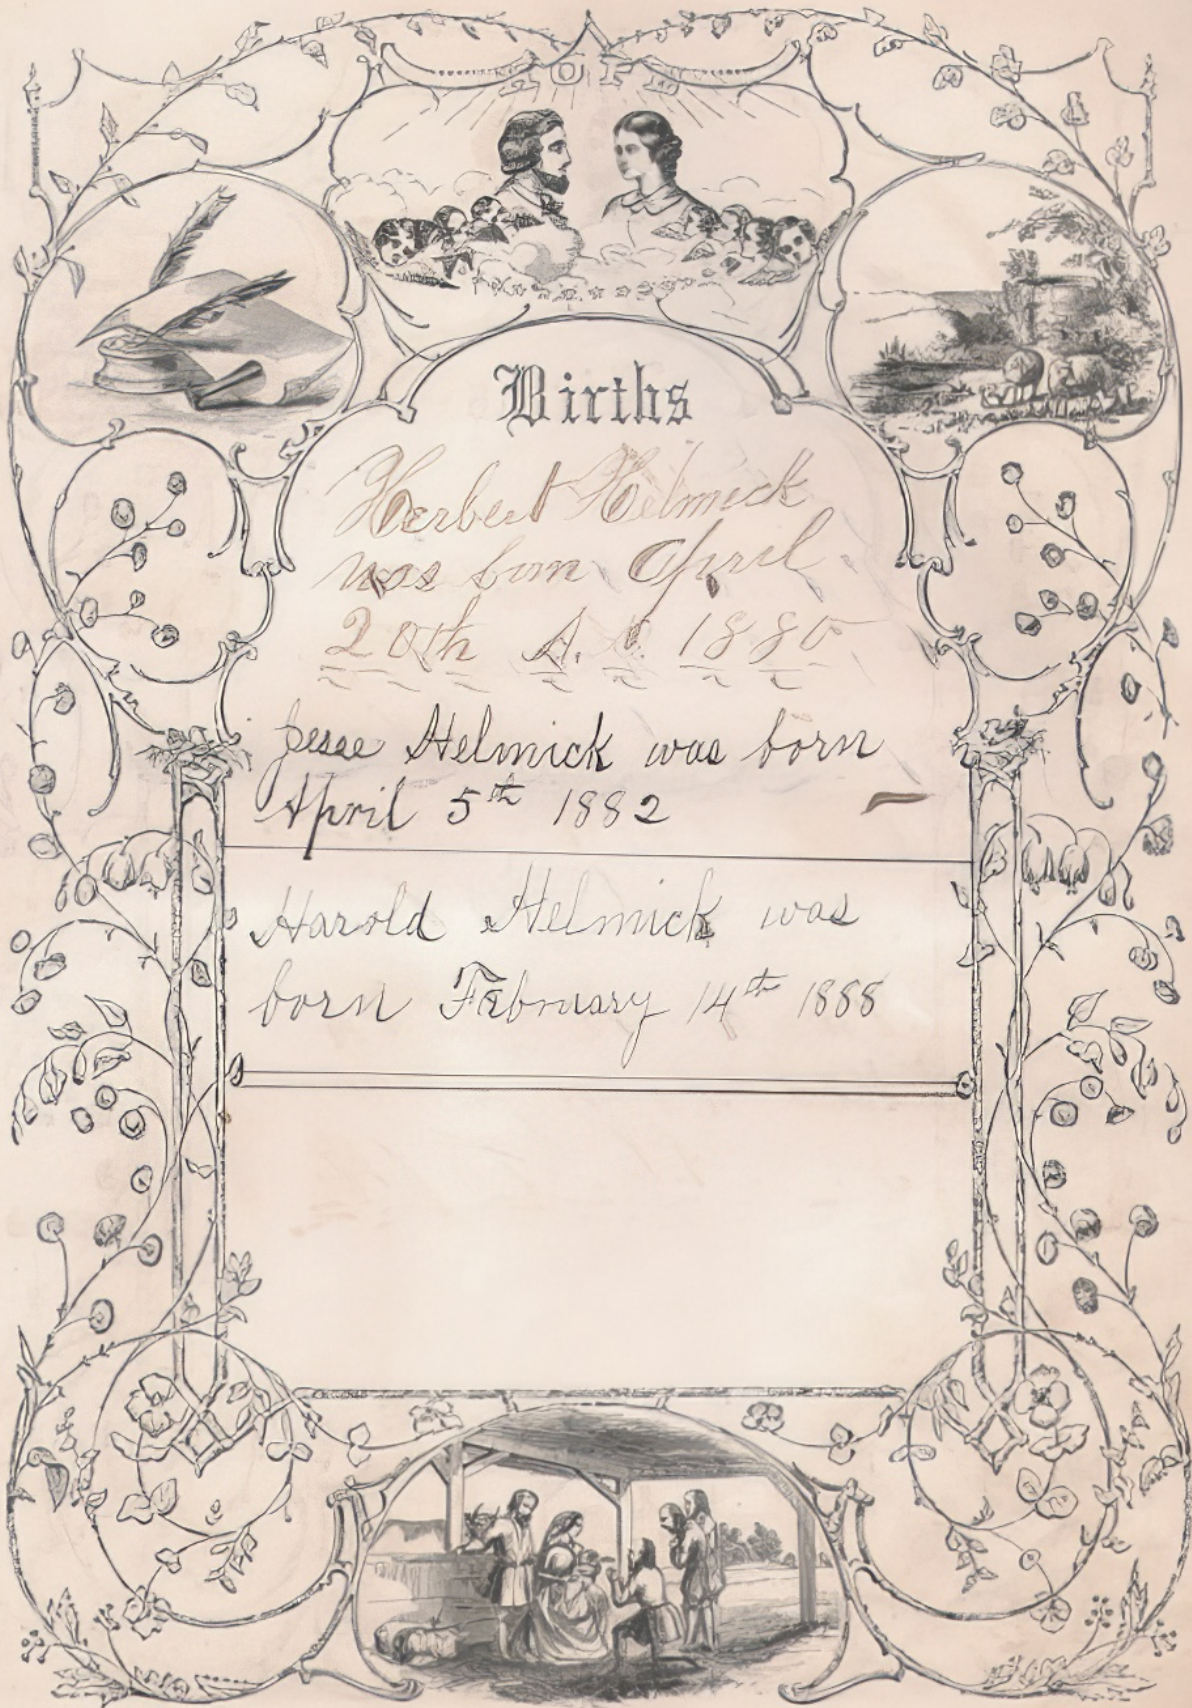 Births
Herbert Helmick
was born April
20th A. D. 1880
Jesse Helmick was born
April 5th 1882
Harold Helmick was
born February 14th 1888